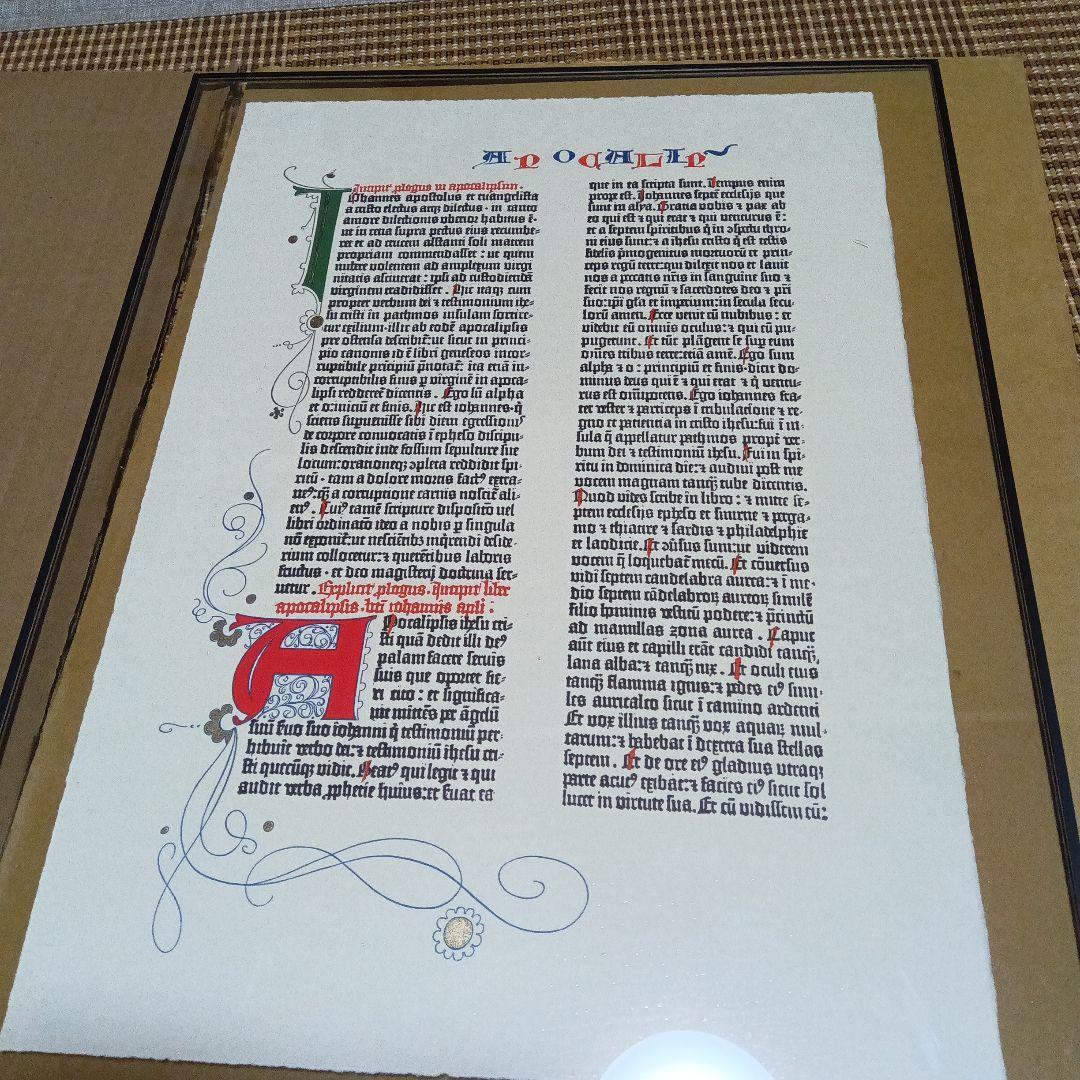 APOCALIP
Incipit plogus in apocalipsim.
Iohannes apostolus et euangelista
a cristo electus atqȝ dilectus · in tanto
amore dilectionis uberior habitus ē·
ut in cena supra pectus eius recumbe-
ret et ad crucem astanti soli matrem
propriam commendasset : ut quem
nubere volentem ad amplexum virgi
nitatis asciuerat : ipsi ad custodiendā
virginem tradidisset . Hic itaqȝ cum
propter verbum dei ⁊ testimonium ihe-
su cristi in pathmos insulam sortire-
tur exilium·illic ab eodē apocalipsis
pre ostensa describit̃:ut sicut in princi-
pio canonis id ē libri geneseos incor-
ruptibile pricipiū p̄notat̃: ita etiā in-
corruptibilis finis p virginē in apoca-
lipsi redderet̃ dicentis . Ego sū alpha
et o:iniciū et finis. Hic est iohannes·q̄
sciens supuenisse sibi diem egressionis
de corpore conuocatis ī epheso discipu-
lis descendit inde fossum sepulture sue
locum:orationeqȝ ꝯpleta reddidit spi-
ritū · tam a dolore mortis factꝰ extra-
neꝰ:qȝ a corruptione carnis noscit̃ ali-
enꝰ. Cuiꝰ tamē scripture dispositō uel
libri ordinatō ideo a nobis p singula
nō exponit̃:ut nesciētibꝫ inq̄rendi deside-
rium collocetur:⁊ querētibus laboris
fructus · et deo magisterij doctrina ser-
uetur . Explicit plogus. Incipit liber
apocalipsis · bti iohannis apli :
Apocalipsis ihesu cri-
sti quā dedit illi deꝰ
palam facere seruis
suis que oportet fie-
ri cito : et significa-
uit mittēs per āgelū
suū seruo suo iohanni q̄ testimoniū per-
hibuit verbo dei:⁊ testimoniū ihesu cri-
sti quecūqȝ vidit. Beatꝰ qui legit ⁊ qui
audit verba pphetie huius:et seruat ea
que in ea scripta sunt. Tempus enim
prope est. Iohannes septē ecclesijs que
sunt in asya. Gratia vobis ⁊ pax ab
eo qui est ⁊ qui erat ⁊ qui venturus ē:
et a septem spiritibus q̄ in ꝯspectu thro-
ni eius sunt:⁊ a ihesu cristo q̄ est testis
fidelis p̄mogenitus mortuorū et prin-
ceps regū terre:qui dilexit nos et lauit
nos a peccatis nr̄is in sanguine suo ⁊
fecit nos regnū ⁊ sacerdotes deo ⁊ pr̄i
suo:ipi gl̄a et imperium:in secula secu-
lorū amen. Ecce venit cū nubibus : et
videbit eū omnis oculus:⁊ qui eū pu-
pugerunt . Et tūc plāgent se sup eum
om̄es tribus terre:etiā amē. Ego sum
alpha ⁊ o : principiū et finis·dicit do-
minus deus qui ē ⁊ qui erat ⁊ q̄ ventu-
rus est om̄ipotens. Ego iohannes fra-
ter vester ⁊ particeps ī tribulatione ⁊ re-
gno et patientia in cristo ihesu:fui ī in-
sula q̄ appellatur pathmos propt̃ ver-
bum dei ⁊ testimoniū ihesu. Fui in spi-
ritu in dominica die:⁊ audiui post me
vocem magnam tanqȝ tube dicentis.
Quod vides scribe in libro : ⁊ mitte se-
ptem ecclesijs epheso et smirne ⁊ perga-
mo ⁊ thiatire ⁊ sardis ⁊ philadelphie
et laodicie. Et ꝯuersus sum:ut viderem
vocem q̄ loquebat̃ mecū. Et cōuersus
vidi septem candelabra aurea:⁊ ī me-
dio septem cādelabroꝝ aureoꝝ similē
filio hominis vestitū podere:⁊ p̄cinctū
ad mamillas zona aurea . Caput
aūt eius et capilli erāt candidi tanqȝ
lana alba:⁊ tanqȝ nix . Et oculi eius
tanqȝ flamma ignis:⁊ pedes eiꝰ simi-
les auricalco sicut ī camino ardenti
Et vox illius tanqȝ vox aquaꝝ mul-
tarum:⁊ habebat ī dextera sua stellas
septem . Et de ore eiꝰ gladius utraqȝ
parte acutꝰ exibat:⁊ facies eiꝰ sicut sol
lucet in virtute sua. Et cū vidissem eū: